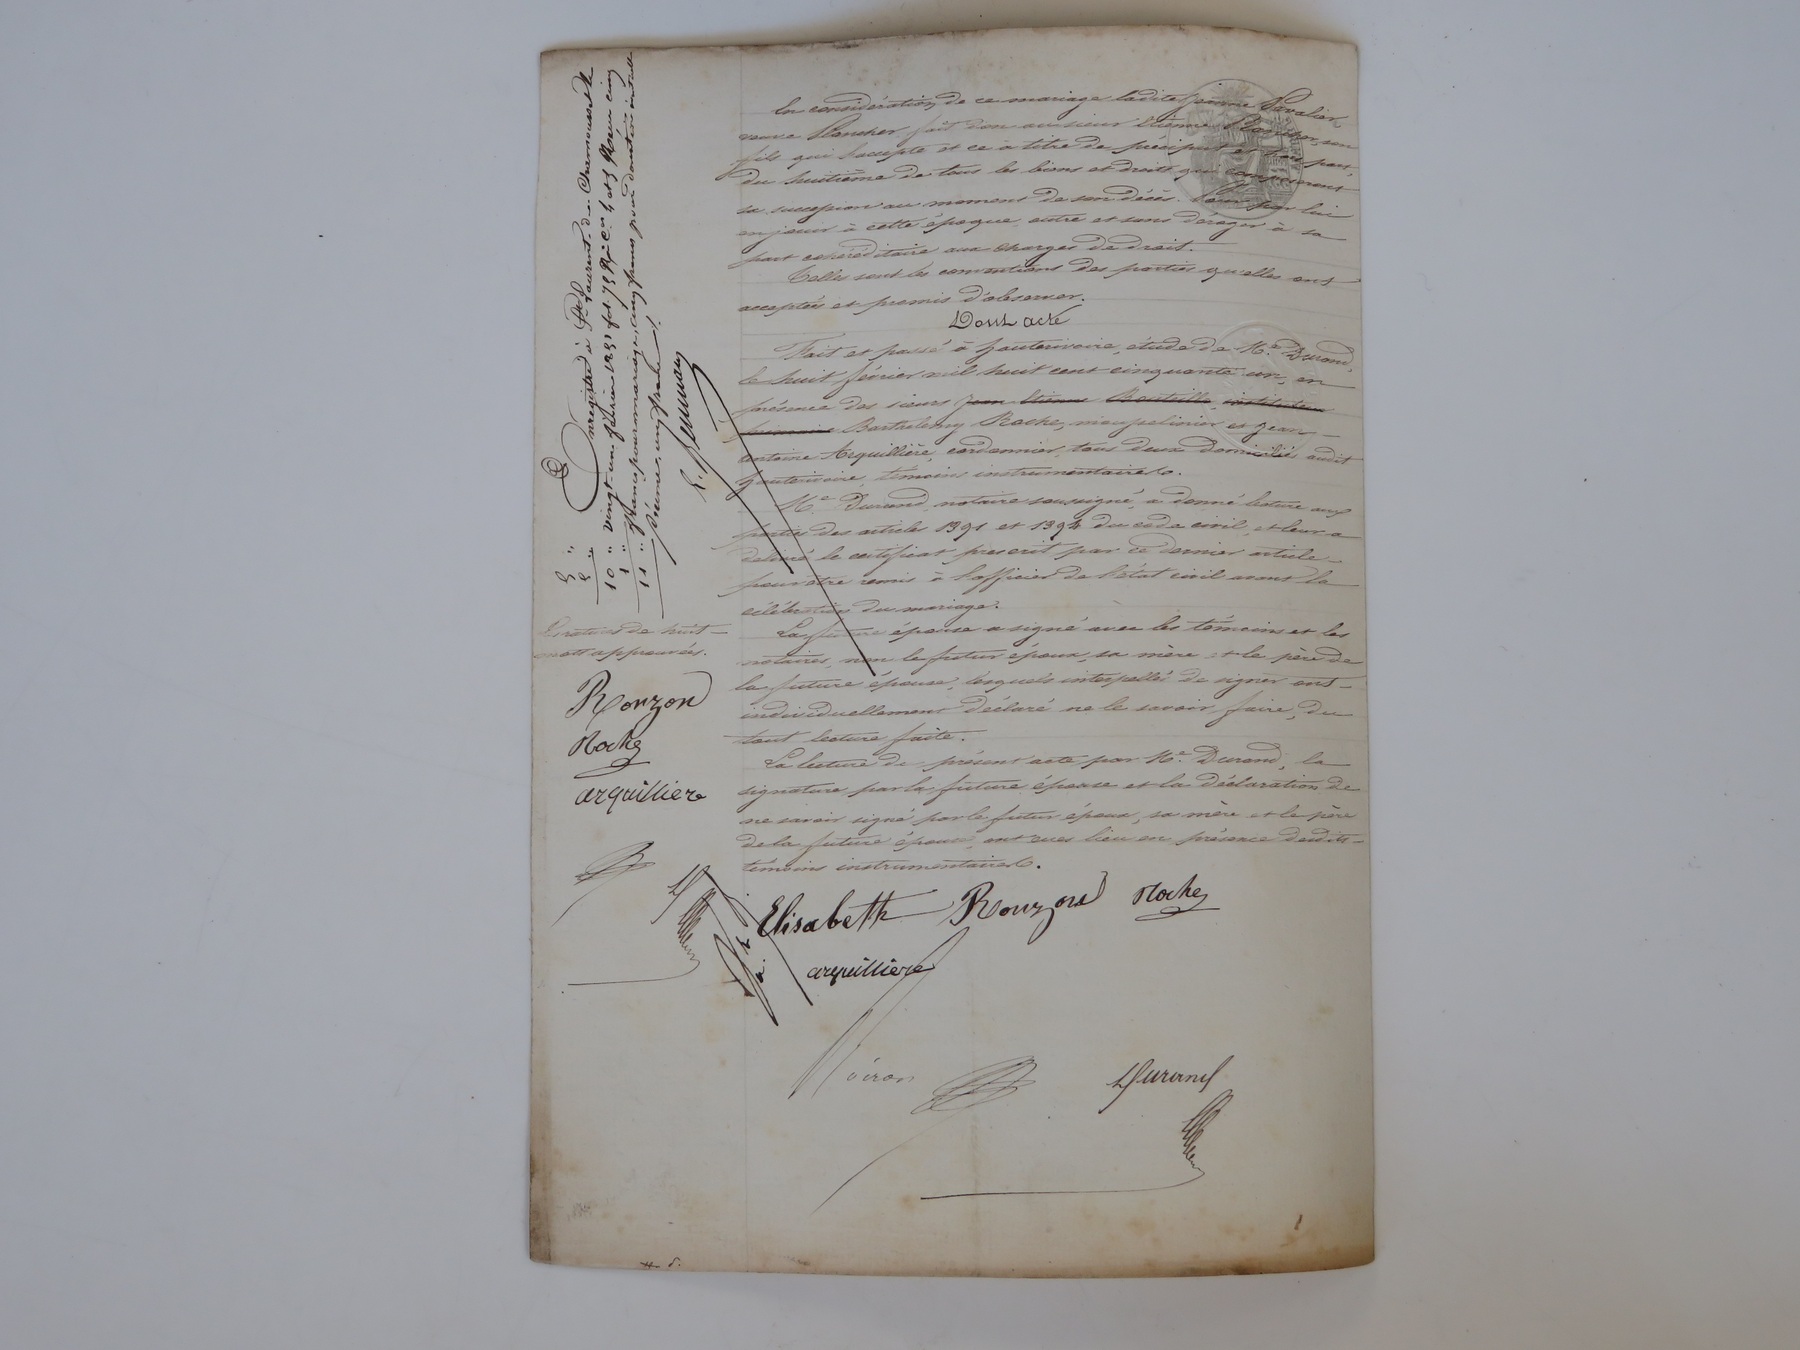 En considération de ce mariage ladite Jeanne
veuve fait don au sieur Etienne son
fils qui l'accepte et ce à titre de préciput et hors part,
du huitième de tous les biens et droits qui composeront
sa succession au moment de son décès. Pour par lui
en jouir à cette époque, outre et sans déroger à sa
part cohéréditaire aux charges de droit.
Telles sont les conventions des parties qu'elles ont
acceptées et promis d'observer.
Dont acte
Fait et passé à hauterivoire, étude de Me. Durand,
le huit février mil huit cent cinquante un, en
présence des sieurs Jean Etienne instituteur
primaire Barthelemy Roche, et Jean
antoine Arquillière, cordonnier, tous deux domiciliés audit
hauterivoire, témoins instrumentaires.
Me. Durand, notaire soussigné, a donné lecture aux
parties des articles 1391 et 1394 du code civil, et leur a
délivré le certificat prescrit par ce dernier article
pour être remis à l'officier de l'état civil avant la
célébration du mariage.
La future épouse a signé avec les témoins et les
notaires, non le futur époux, sa mère et le père de
la future épouse, lesquels interpellés de signer ont
individuellement déclaré ne le savoir faire, du
tout lecture faite.
La lecture du présent acte par Me. Durand, la
signature par la future épouse et la déclaration de
ne savoir signé par le futur époux, sa mère et le père
de la future épouse, ont eues lieu en présence desdits
témoins instrumentaires.
Elisabeth Ronzon Roche
arquilliere
Noiron
Durand
Enregistré à St Laurent de Chamousset le
vingt-un février 1851 fol. 73 Ro Cn 4 et 5 Reçu cinq
francs pour mariage, cinq francs pour donation
décime, un franc.
5 "
5 "
10 "
1 "
11 "
Ratures de huit
mots approuvées.
Ronzon
Roche
arquilliere